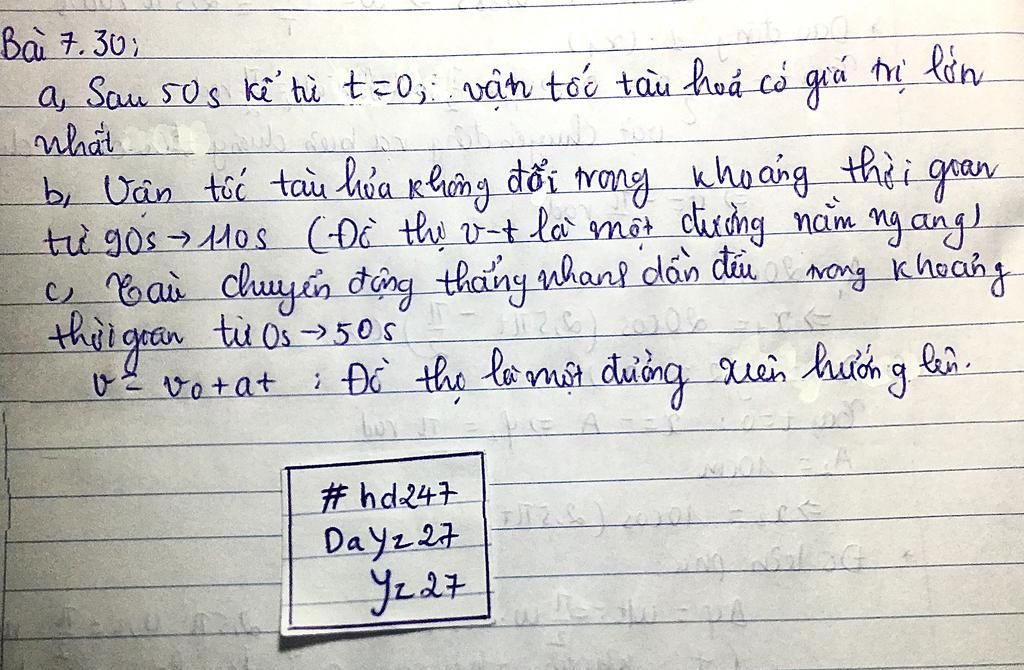 Bài 7.30:
a, Sau 50s kể từ t=0; vận tốc tàu hoả có giá trị lớn
nhất
b, Vận tốc tàu hỏa không đổi trong khoảng thời gian
từ 90s → 110s (Đồ thị v-t là một đường nằm ngang)
c, Tàu chuyển động thẳng nhanh dần đều trong khoảng
thời gian từ 0s → 50s
v = v₀ + at ; Đồ thị là một đường xiên hướng lên.
# hd247
DaYz27
Yz27